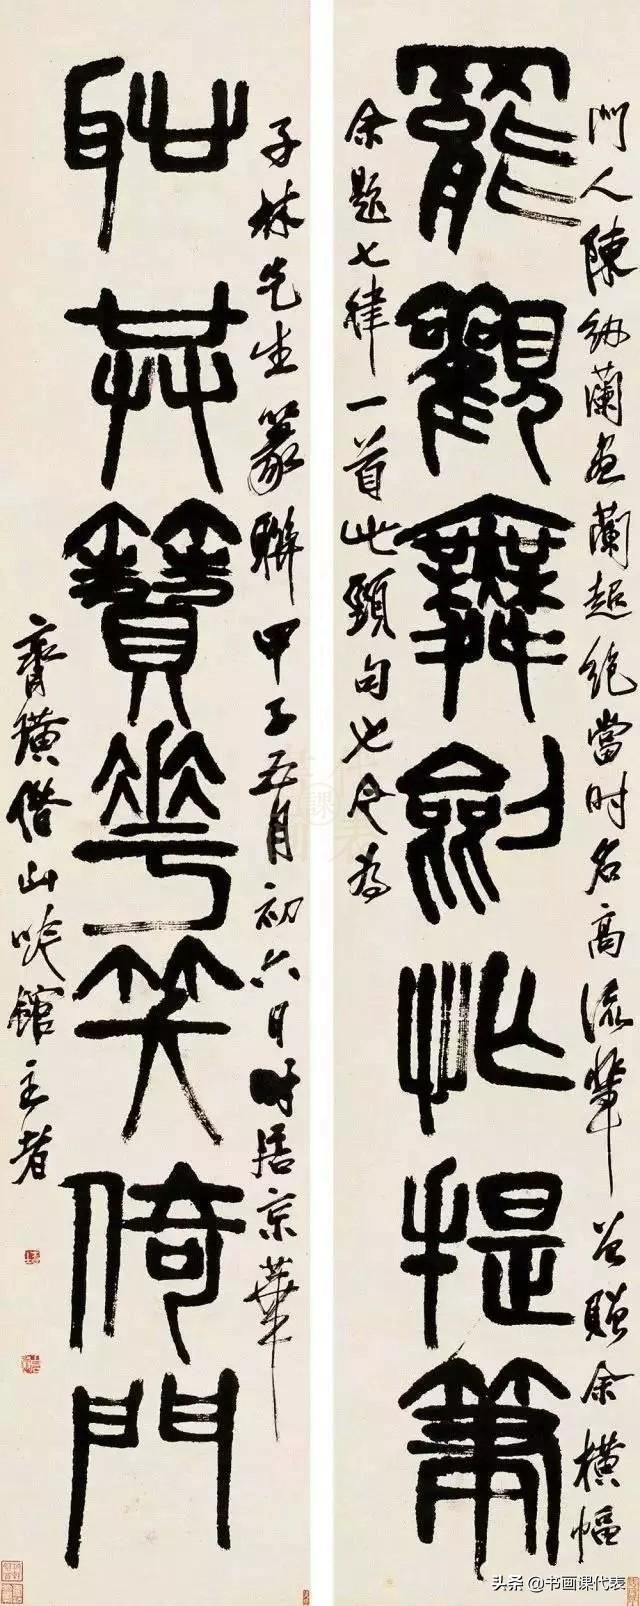 門人陳紉蘭畫蘭超絕當時名高流輩贈余橫幅
罷觀舞劍忙提筆
余題七律一首此頸句也今為
子林先生篆聯甲子五月初六日時居京華
耻共簪花笑倚門
齊璜借山吟館主者
头条@书画课代表